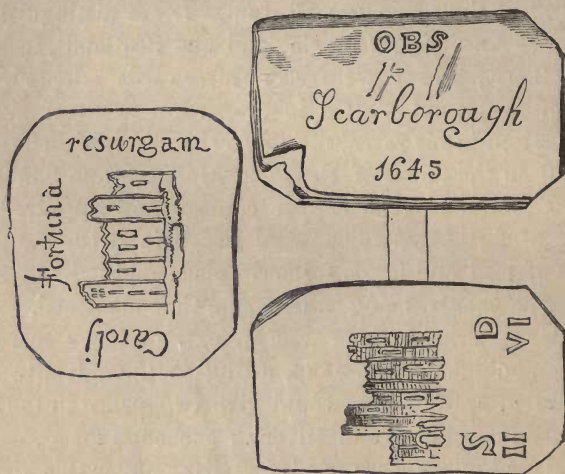 Carolj fortunà resurgam
OBS
Scarborough
1645
S D
II VI